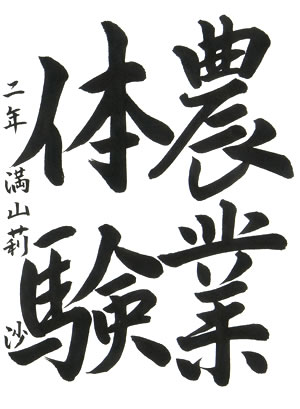 農業
体験
二年 満山莉沙